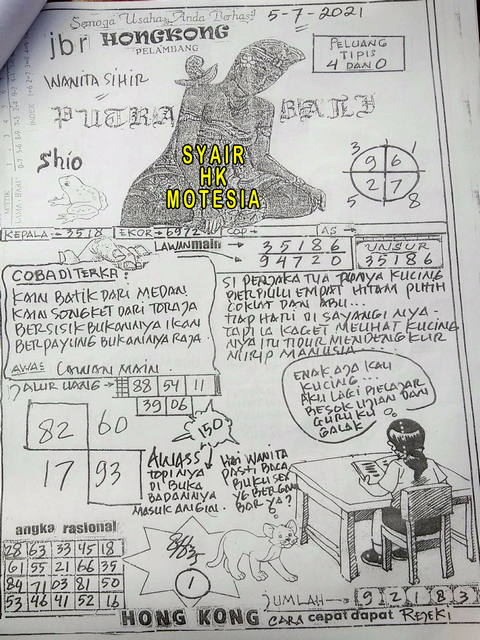 Semoga Usaha Anda Berhasil
5-7-2021
jbr HONGKONG
PELAMBANG
PELUANG
TIPIS
4 DAN 0
WANITA SIHIR
PUTRA BALI
Shio
SYAIR
HK
MOTESIA
3 1
9 6
2 7
5 8
KEPALA: 3518
EKOR: 6972
COP
AS
LAWAN main
3 5 1 8 6
9 4 7 2 0
UNSUR
35186
COBA DI TERKA:
KAIN BATIK DARI MEDAN
KAIN SONGKET DARI TORAJA
BERSISIK BUKANNYA IKAN
BERPAYUNG BUKANNYA RAJA
AWAS LAWAN MAIN.
SI PERJAKA TUA PUNYA KUCING
BERBULU EMPAT HITAM PUTIH
COKLAT DAN ABU...
TIAP HARI DI SAYANGI NYA-
TAPI IA KAGET MELIHAT KUCING
NYA ITU TIDUR MENDENGKUR
MIRIP MANUSIA
JALUR UANG
88 54 11
39 06
150
82 60
17 93
ENAK AJA KAU
KUCING...
AKU LAGI BELAJAR
BESOK UJIAN DAN
GURUKU
GALAK
AWASS
TOPI NYA
DI BUKA
BADANNYA
MASUK ANGIN.
HAI WANITA
PASTI BACA
BUKU SEX
YG BERGAM
BAR YA?
angka rasional
28 63 33 45 18
61 55 21 66 35
84 71 03 81 50
53 46 41 52 16
1
JUMLAH
9 2 1 8 3
HONG KONG CARA cepat dapat REJEKI